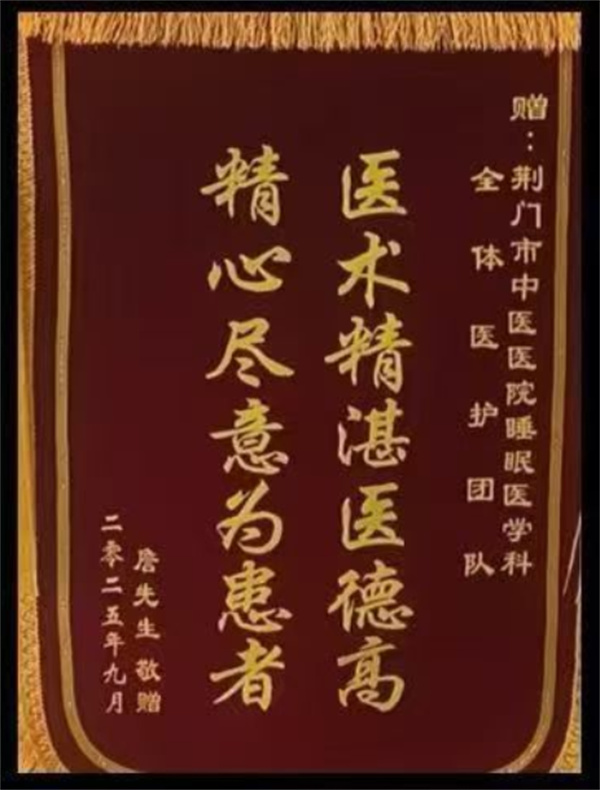 赠：荆门市中医医院睡眠医学科
全体医护团队
医术精湛医德高
精心尽意为患者
詹先生 敬赠
二零二五年九月